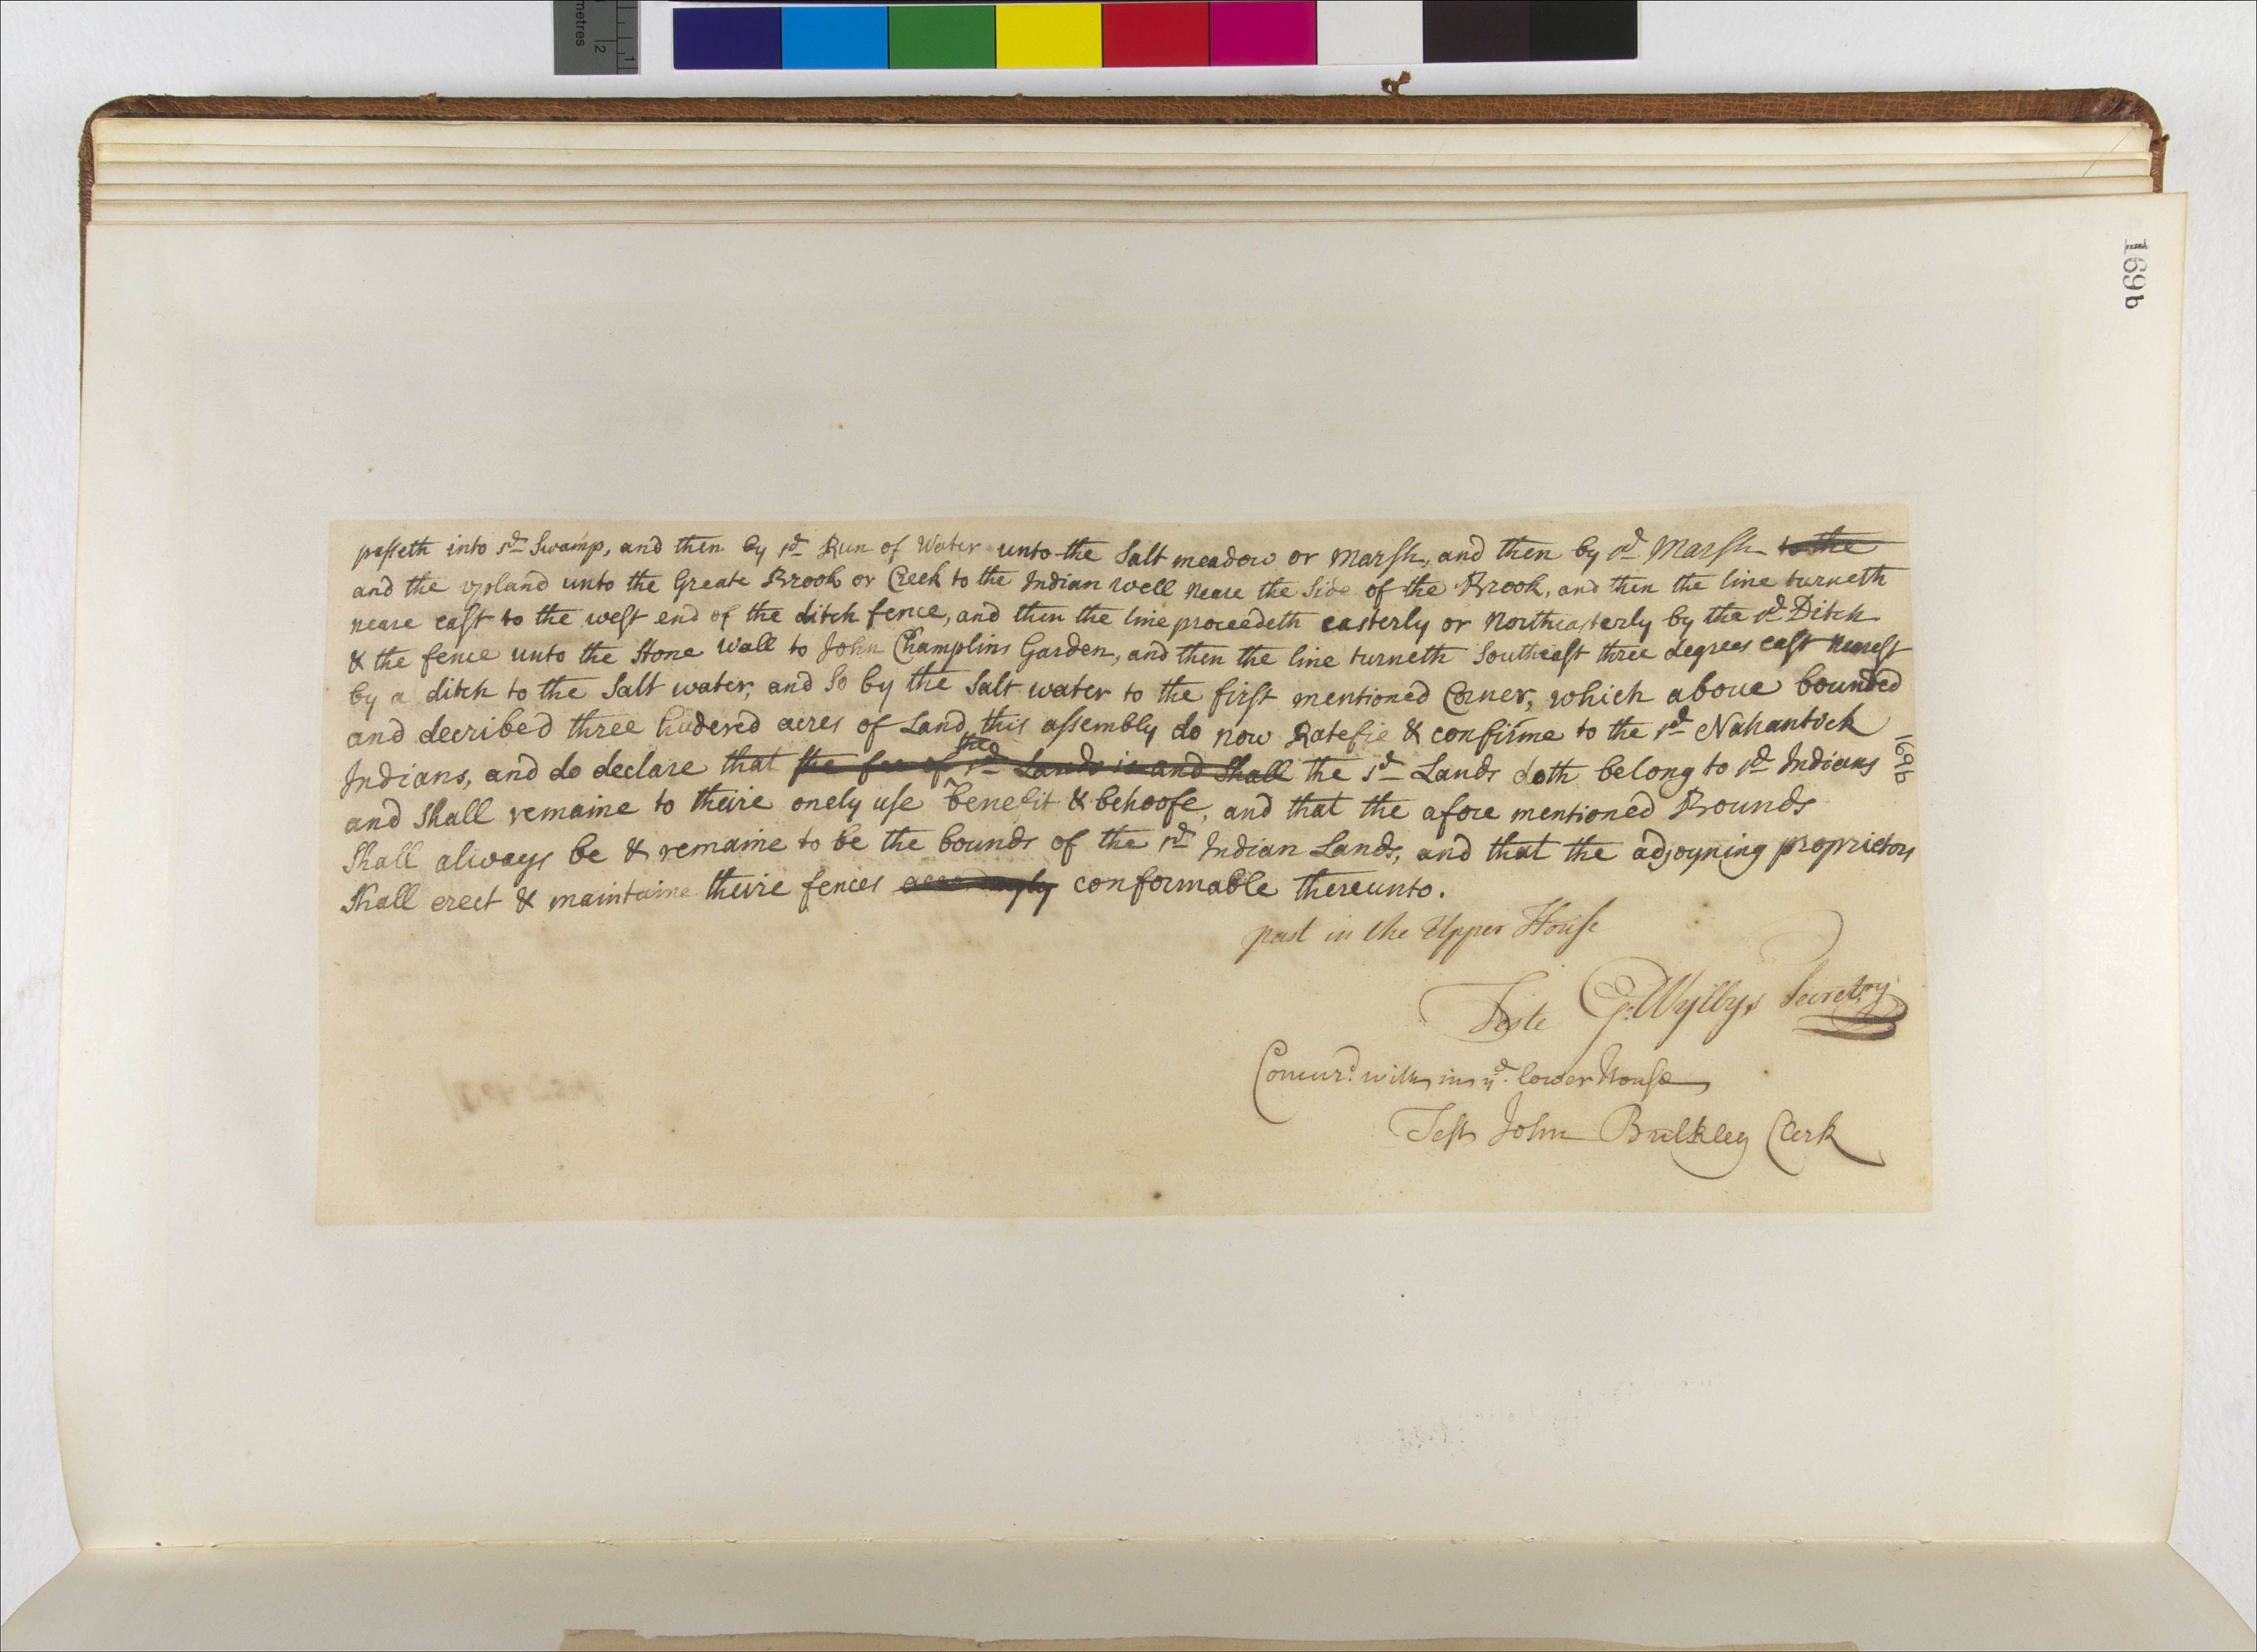 metres
2
1
169b
passeth into sd Swamp, and then by sd Run of Water unto the Salt meadow or Marsh, and then by sd Marsh to the
and the upland unto the Greate Brook or Creek to the Indian well neare the Side of the Brook, and then the line turneth
neare east to the west end of the ditch fence, and then the line proceedeth easterly or Northeasterly by the sd Ditch
& the fence unto the Stone wall to John Champlins Garden, and then the line turneth Southeast three degrees east nearest
by a ditch to the Salt water, and So by the Salt water to the first mentioned Corner, which above bounded
and decribed three hudered acres of Land this assembly do now Ratefie & confirme to the sd Nahantick
Indians, and do declare that the fee of sd Lands is and Shall the sd Lands doth belong to sd Indians
and Shall remaine to theire onely use benefit & behoofe, and that the afore mentioned Bounds
Shall always be & remaine to be the bounds of the sd Indian Lands, and that the adjoyning proprietors
Shall erect & maintaine theire fences accordingly conformable thereunto.
169b
past in the Upper House
Teste G. Wyllys Secretry
Concurd with in ye lower House
Test John Bulkley Clerk